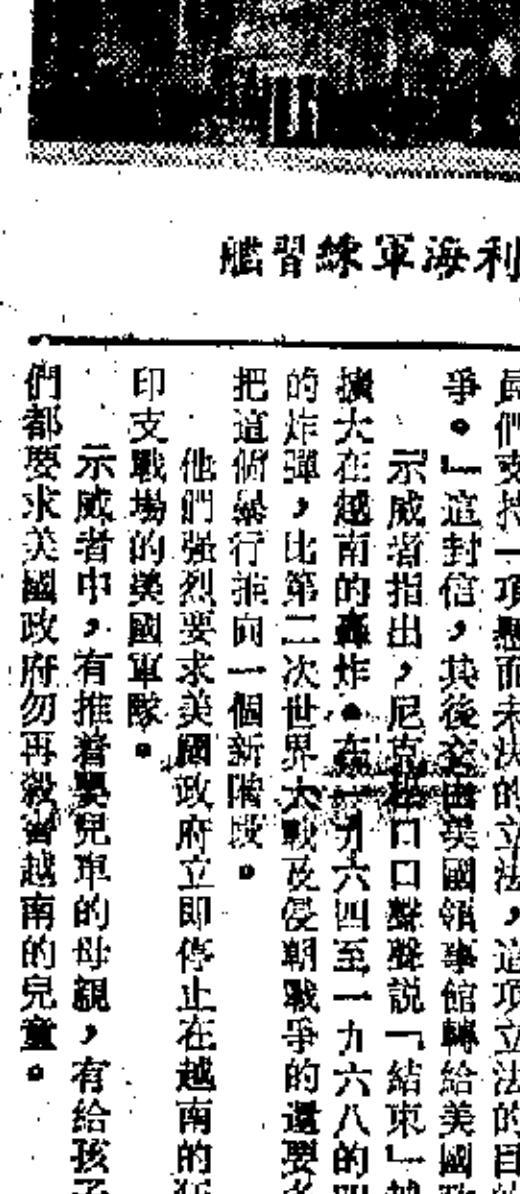 利海軍練習艦
員們支持一項懸而未決的立法，這項立法的目的
爭。」這封信，其後交由美國領事館轉給美國政
示威者指出，尼克遜口口聲聲説「結束」越
擴大在越南的轟炸。在一九六四至一九六八的
的炸彈，比第二次世界大戰及侵朝戰爭的還要多
把這個暴行推向一個新階段。
他們强烈要求美國政府立即停止在越南的狂
印支戰場的美國軍隊。
示威者中，有推着嬰兒車的母親，有給孩子
們都要求美國政府勿再殺害越南的兒童。